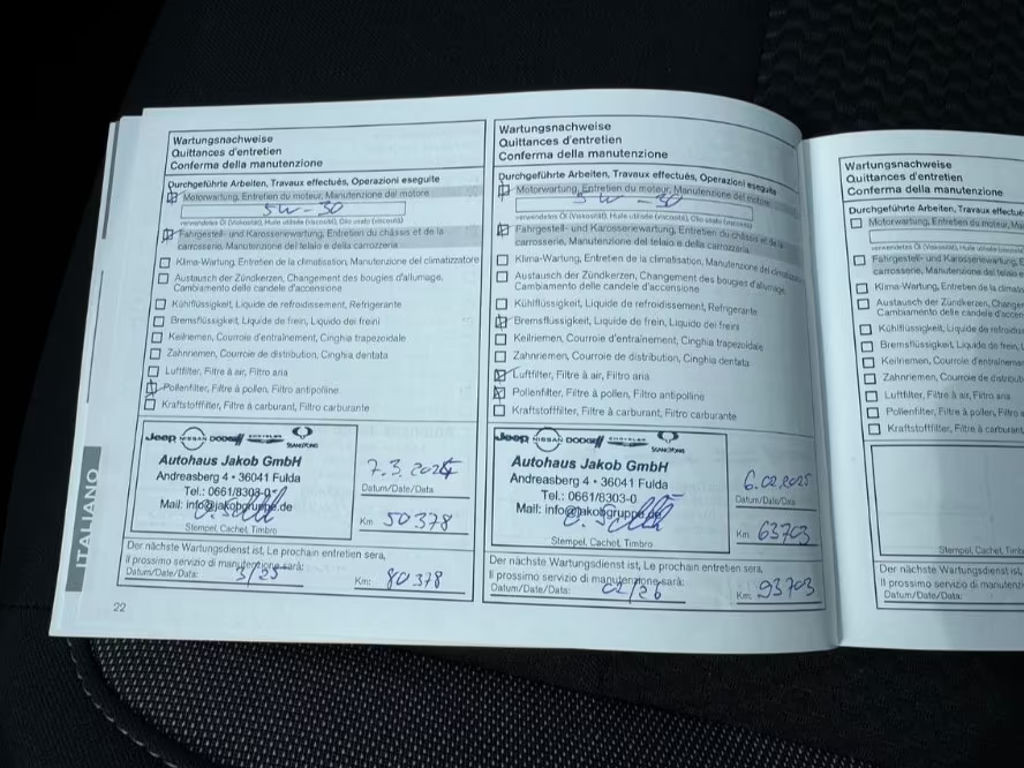 Wartungsnachweise
Quittances d'entretien
Conferma della manutenzione
Durchgeführte Arbeiten, Travaux effectués, Operazioni eseguite
Motorwartung, Entretien du moteur, Manutenzione del motore
5W-30
verwendetes Öl (Viskosität), Huile utilisée (viscosité), Olio usato (viscosità)
Fahrgestell- und Karosseriewartung, Entretien du châssis et de la
carrosserie, Manutenzione del telaio e della carrozzeria
Klima-Wartung, Entretien de la climatisation, Manutenzione del climatizzatore
Austausch der Zündkerzen, Changement des bougies d'allumage,
Cambiamento delle candele d'accensione
Kühlflüssigkeit, Liquide de refroidissement, Refrigerante
Bremsflüssigkeit, Liquide de frein, Liquido dei freini
Keilriemen, Courroie d'entraînement, Cinghia trapezoidale
Zahnriemen, Courroie de distribution, Cinghia dentata
Luftfilter, Filtre à air, Filtro aria
Pollenfilter, Filtre à pollen, Filtro antipolline
Kraftstofffilter, Filtre à carburant, Filtro carburante
Jeep NISSAN DODGE CHRYSLER SSANGYONG
Autohaus Jakob GmbH
Andreasberg 4 • 36041 Fulda
Tel.: 0661/8303-0
Mail: info@jakobgruppe.de
Stempel, Cachet, Timbro
7.3.2024
Datum/Date/Data
Km 50378
Der nächste Wartungsdienst ist, Le prochain entretien sera,
Il prossimo servizio di manutenzione sarà:
Datum/Date/Data: 3/25
Km: 80378
ITALIANO
22
Wartungsnachweise
Quittances d'entretien
Conferma della manutenzione
Durchgeführte Arbeiten, Travaux effectués, Operazioni eseguite
Motorwartung, Entretien du moteur, Manutenzione del motore
5W-30
verwendetes Öl (Viskosität), Huile utilisée (viscosité), Olio usato (viscosità)
Fahrgestell- und Karosseriewartung, Entretien du châssis et de la
carrosserie, Manutenzione del telaio e della carrozzeria
Klima-Wartung, Entretien de la climatisation, Manutenzione del climatizzatore
Austausch der Zündkerzen, Changement des bougies d'allumage,
Cambiamento delle candele d'accensione
Kühlflüssigkeit, Liquide de refroidissement, Refrigerante
Bremsflüssigkeit, Liquide de frein, Liquido dei freini
Keilriemen, Courroie d'entraînement, Cinghia trapezoidale
Zahnriemen, Courroie de distribution, Cinghia dentata
Luftfilter, Filtre à air, Filtro aria
Pollenfilter, Filtre à pollen, Filtro antipolline
Kraftstofffilter, Filtre à carburant, Filtro carburante
Jeep NISSAN DODGE CHRYSLER SSANGYONG
Autohaus Jakob GmbH
Andreasberg 4 • 36041 Fulda
Tel.: 0661/8303-0
Mail: info@jakobgruppe.de
Stempel, Cachet, Timbro
6.02.2025
Datum/Date/Data
Km 63703
Der nächste Wartungsdienst ist, Le prochain entretien sera,
Il prossimo servizio di manutenzione sarà:
Datum/Date/Data: 02/26
Km: 93703
Wartungsnachweise
Quittances d'entretien
Conferma della manutenzione
Durchgeführte Arbeiten, Travaux
Motorwartung, Entretien du moteur,
verwendetes Öl (Viskosität), Huile utilisée
Fahrgestell- und Karosseriewartung,
carrosserie, Manutenzione del telaio e
Klima-Wartung, Entretien de la
Austausch der Zündkerzen,
Cambiamento delle candele
Kühlflüssigkeit, Liquide de
Bremsflüssigkeit, Liquide de frein,
Keilriemen, Courroie
Zahnriemen, Courroie de
Luftfilter, Filtre à air, Filtro
Pollenfilter, Filtre à pollen,
Kraftstofffilter, Filtre à
Stempel, Cachet,
Der nächste Wartungsdienst ist,
Il prossimo servizio di
Datum/Date/Data: